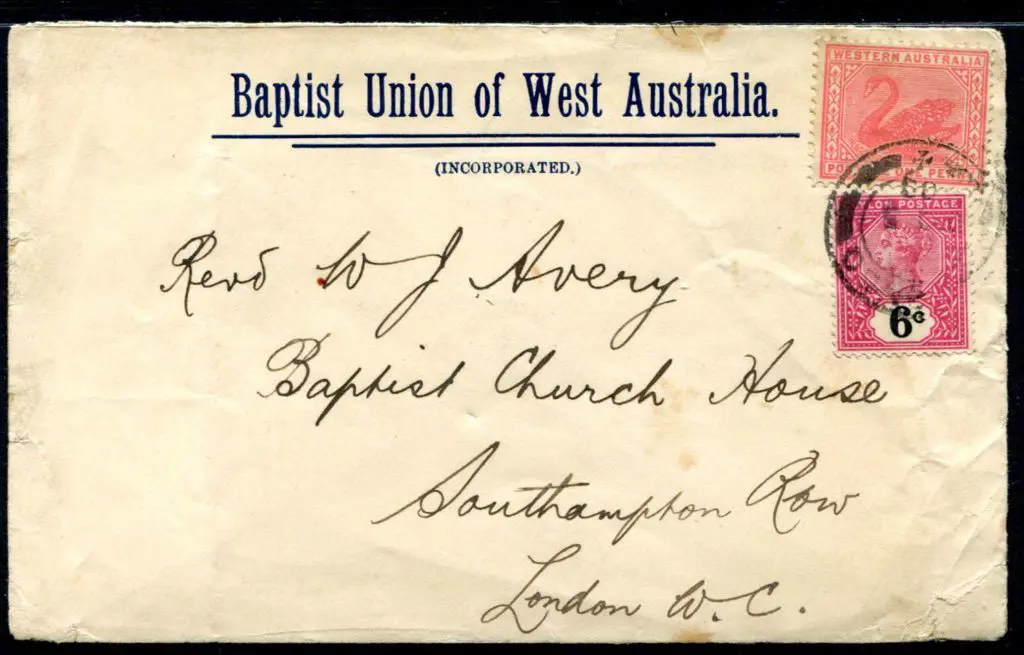 Baptist Union of West Australia.
(INCORPORATED.)
WESTERN AUSTRALIA
POSTAGE
6c
Revd W J Avery
Baptist Church House
Southampton Row
London W.C.